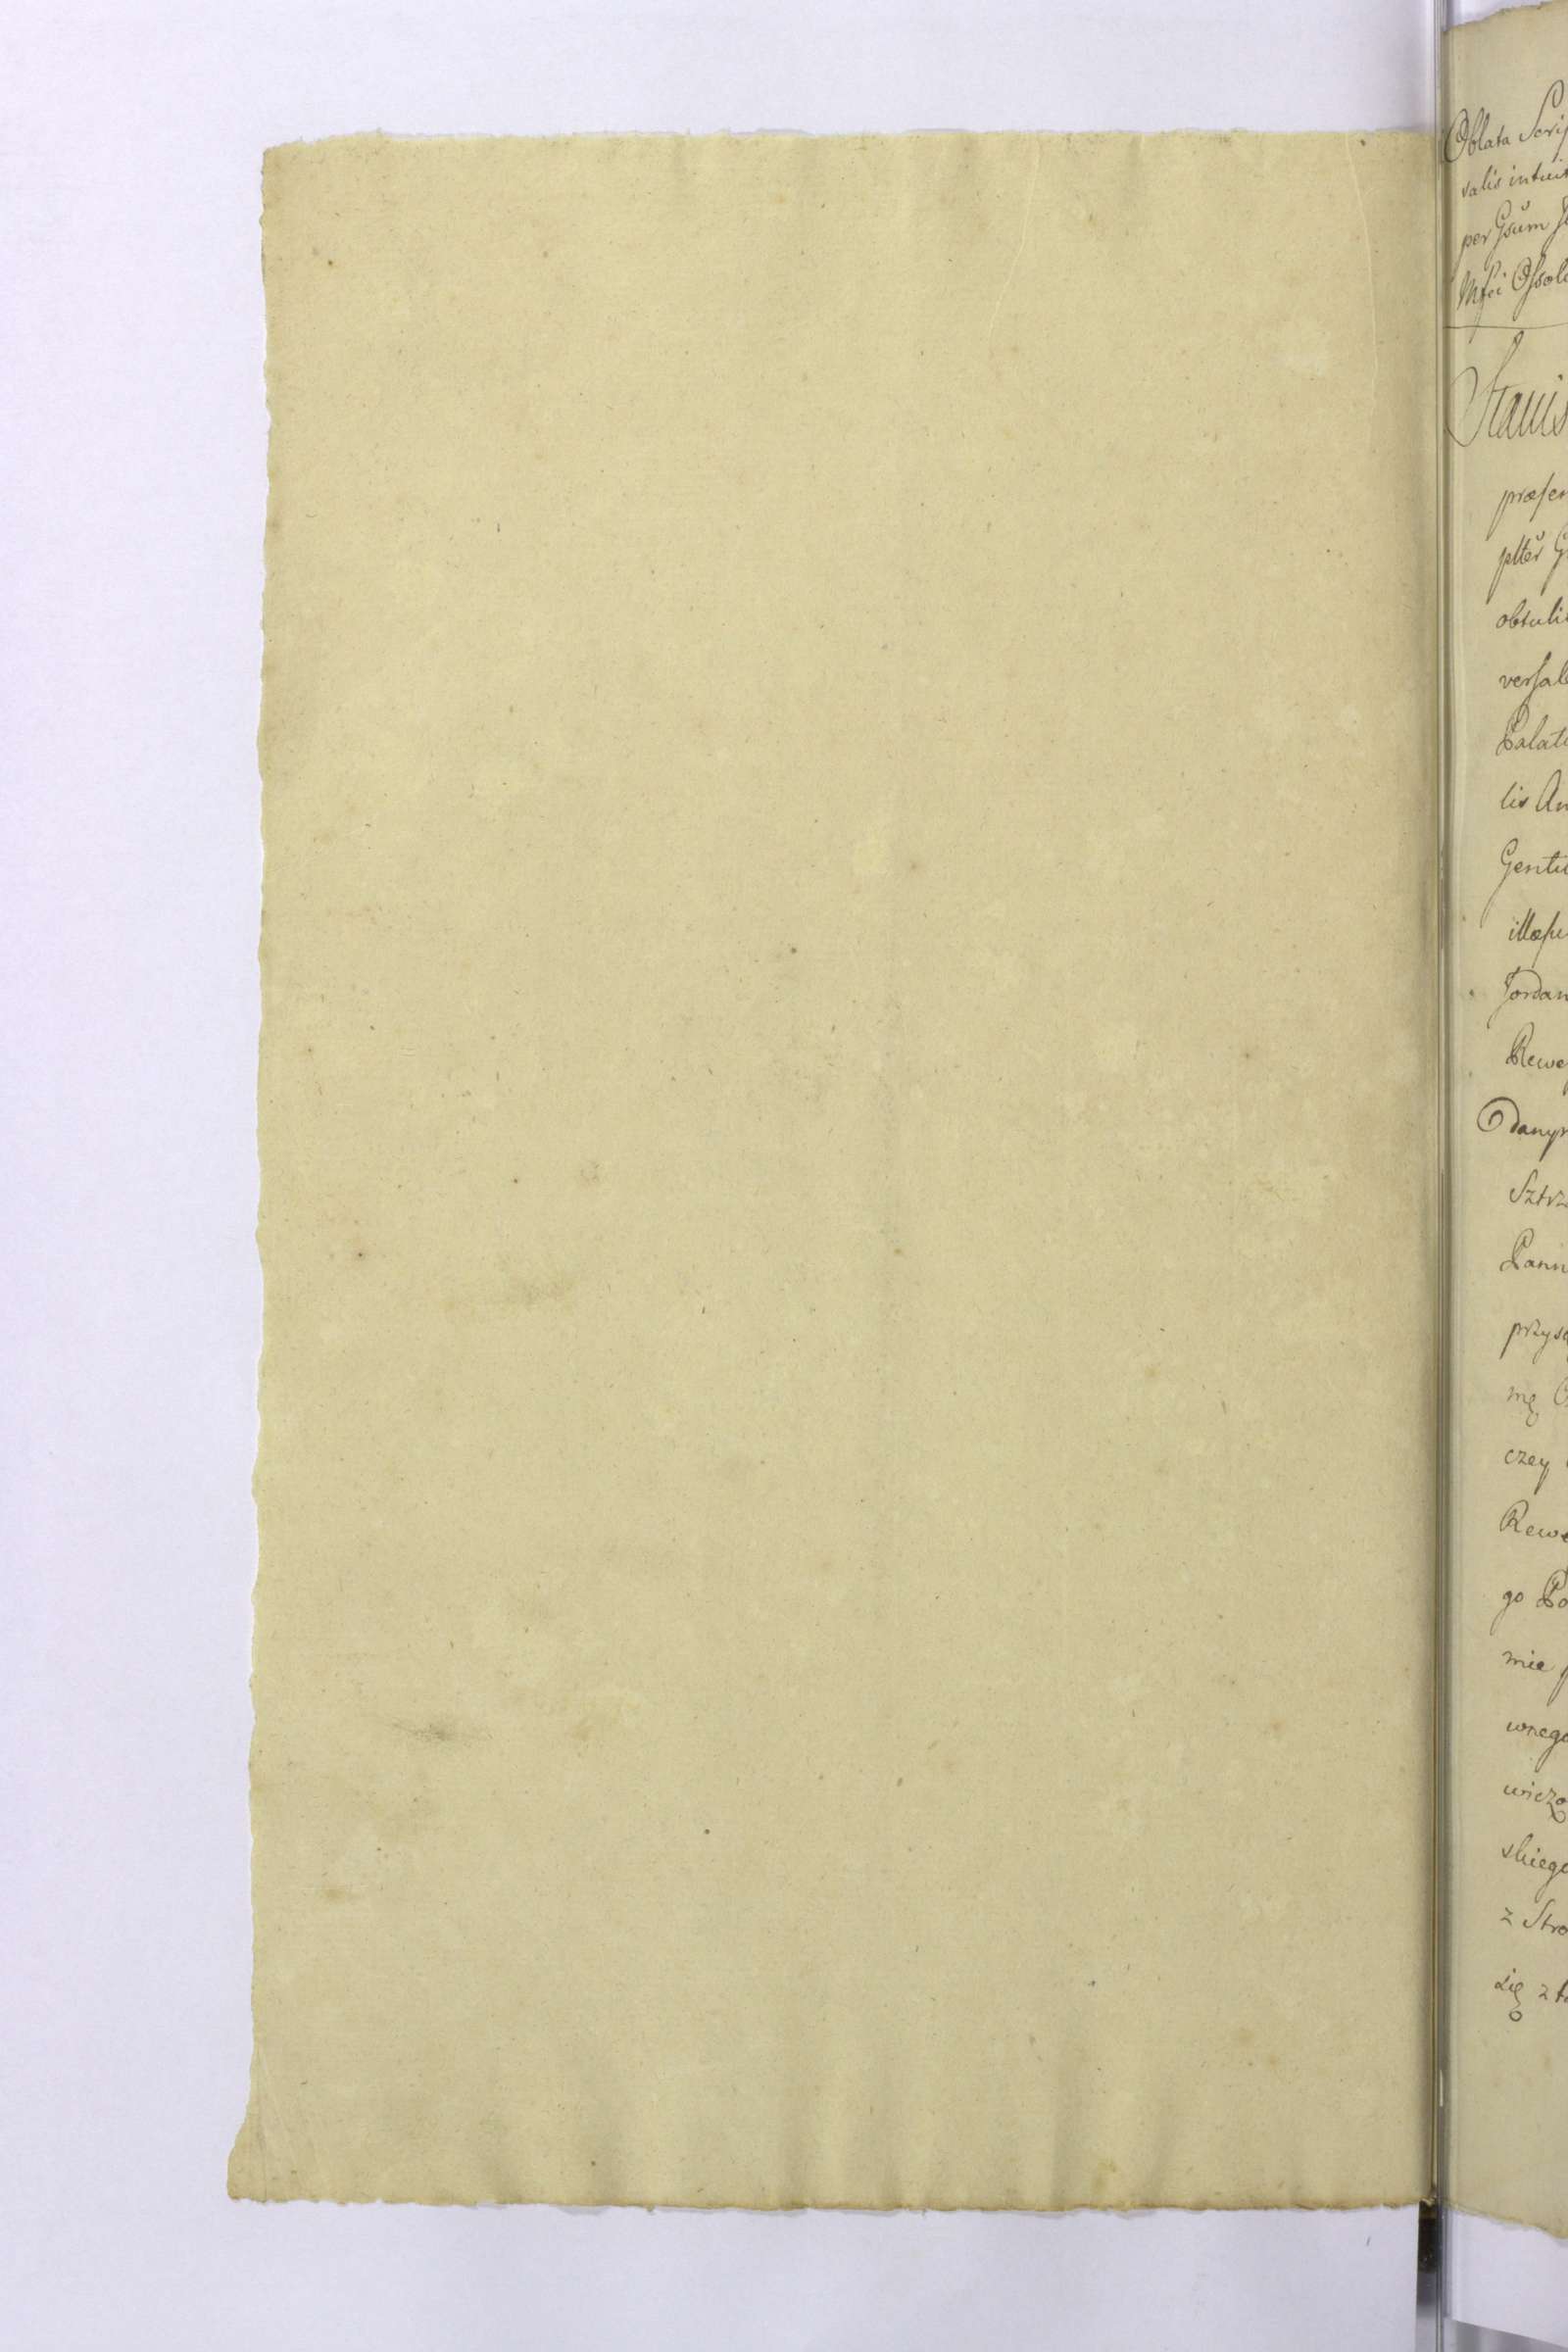 Oblata Scrip
salis intuit
per Gsum
Mfci Ossol
Stanis
præsen
plter G
obtuli
versal
Palati
lis An
Gentil
illæsu
Jordan
Rewe
Odanym
Sztrz
Pann
przysą
mę
czey
Rewe
go Po
mie
wnego
wiczo
skiego
z Stro
się z ta